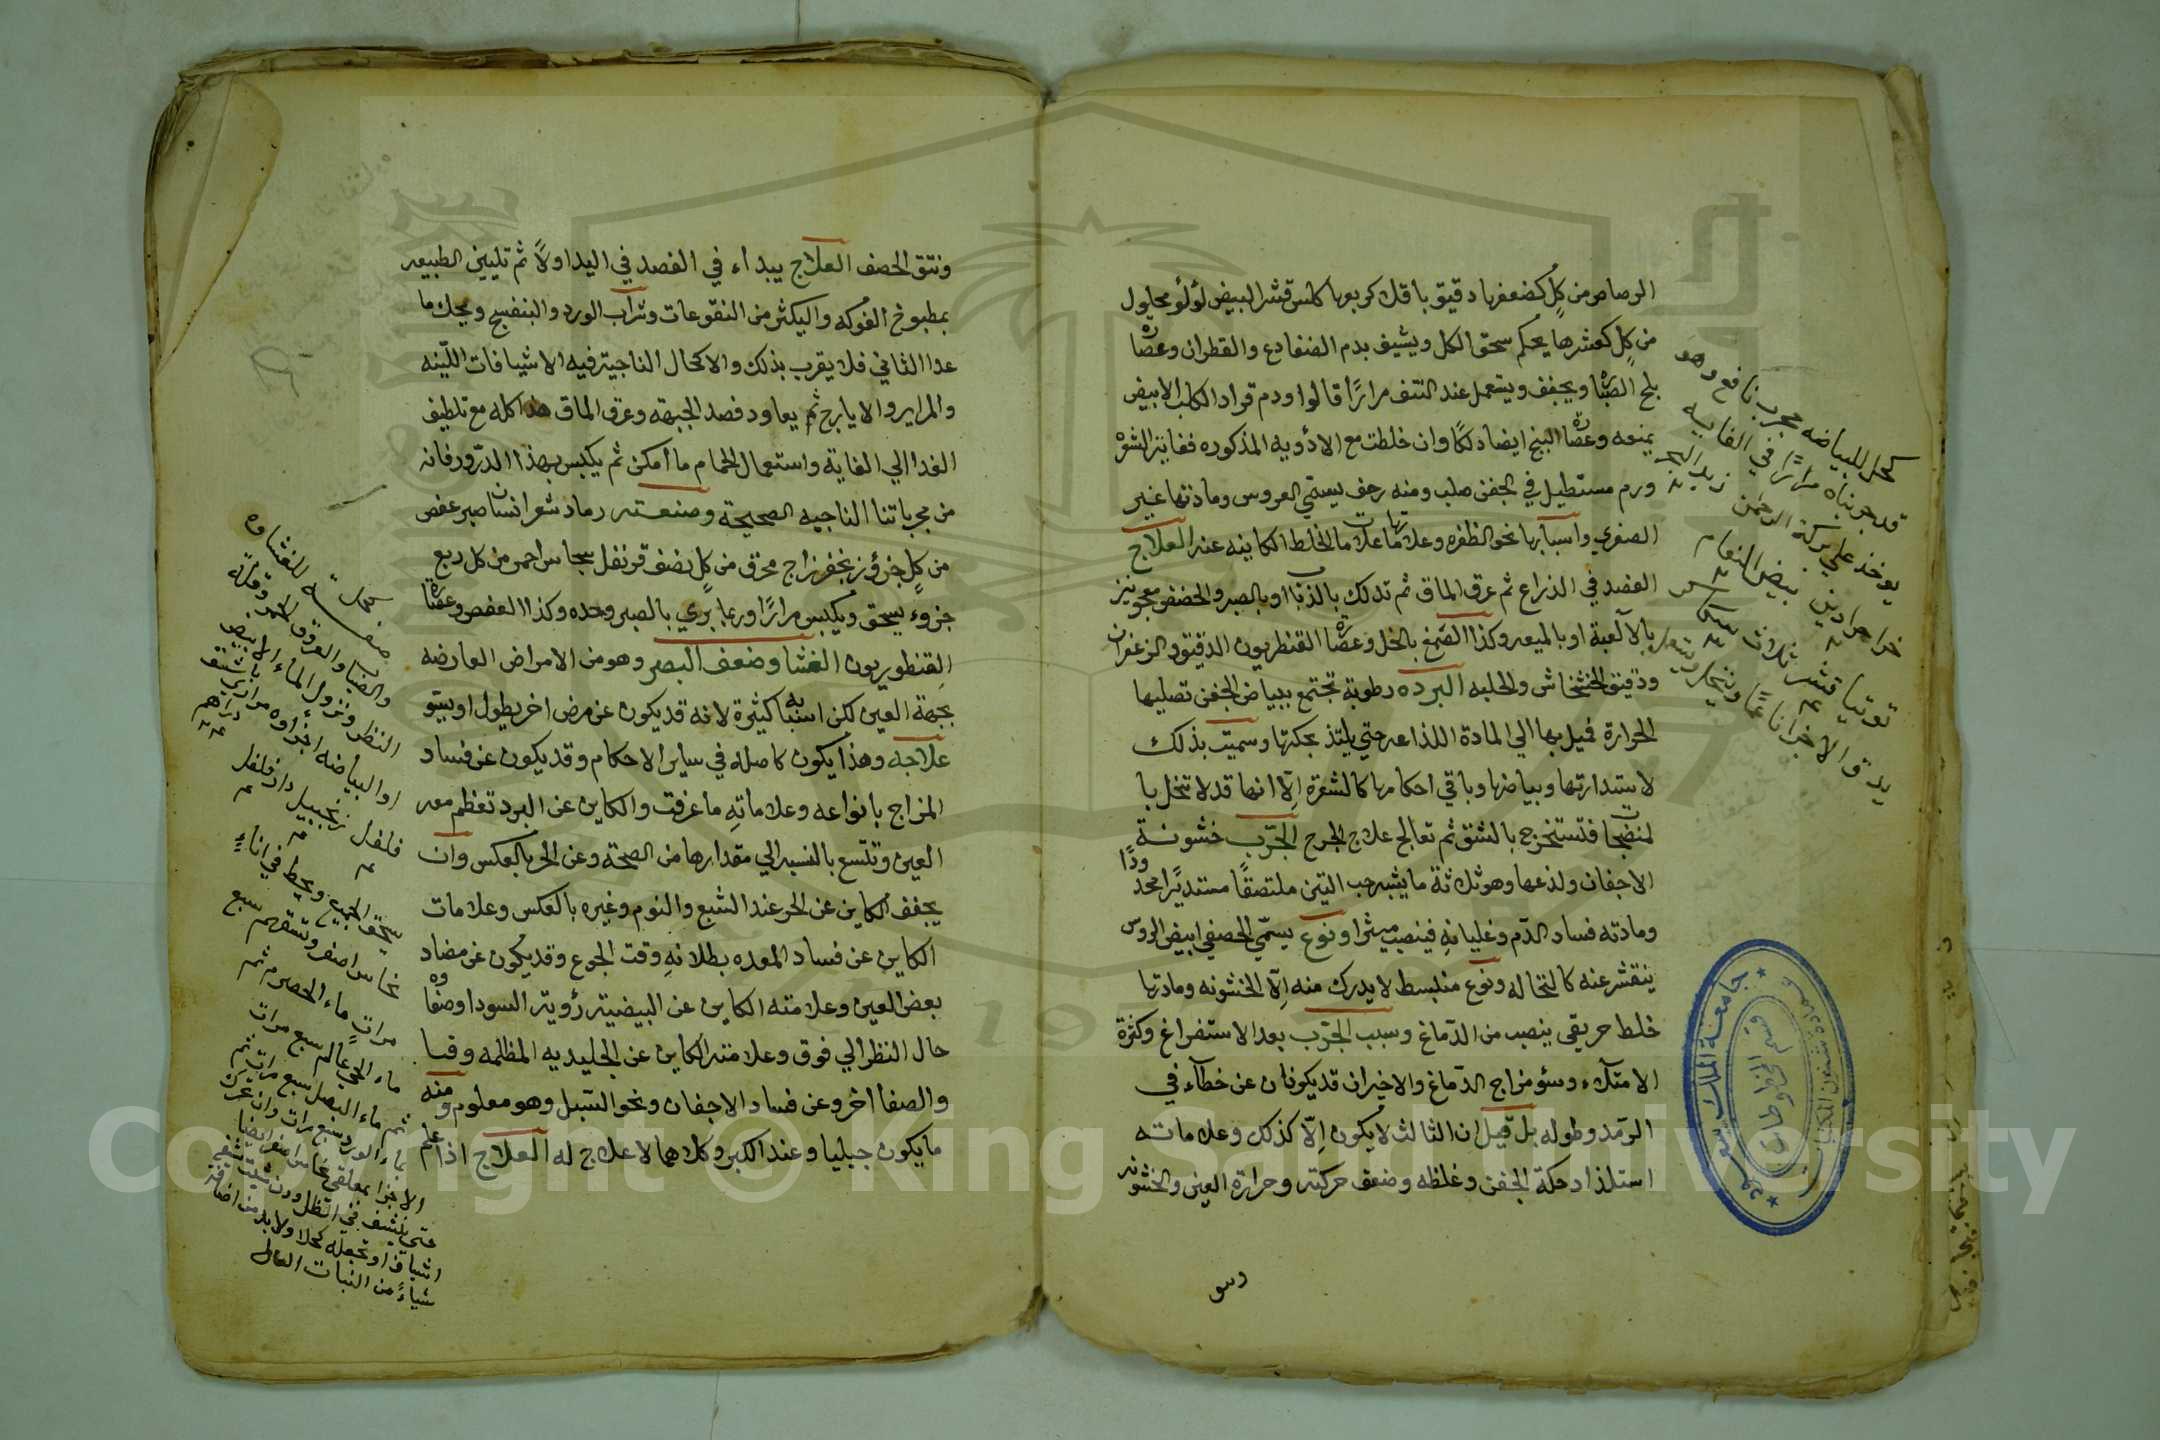 الرصاص من كل كضعفها دقيق باقلا كربعها كلس قشر البيض لؤلؤ محلول
من كل كعشرها يحكم سحق الكل ويشيف بدم الضفادع والقطران وعصارة
بلح الصبا ويجفف ويستعمل عند النتف مرارًا قالوا ودم قراد الكلب الابيض
يمنعه وعصارة البنج ايضا دلكًا وان خلطت مع الادويه المذكوره فغاية الشعره
ورم مستطيل في الجفن صلب ومنه رخف يسمي العروس ومادتها غير
الصفري واسبابها نحو الظفره وعلاماتها علامات الخلط الكاينه عنه العلاج
الفصد في الذراع ثم عرق الماق ثم تدلك بالذباب او بالصبر والحضض معجونيز
بالالعبة او بالميعه وكذا الصمغ بالخل وعصارة القنطريون الدقيق والزعفران
ودقيق الخشخاش والحلبه البرده رطوبة تجتمع ببياض الجفن تصليها
الحرارة فيل بها الي المادة اللذاعه حتي يلتذ بحكتها وسميت بذلك
لاستدارتها وبياضها وباقي احكامها كالشعره الّا انها قد لا تنحل با
لمنضجات فتستخرج بالشق ثم تعالج علاج الجرح الجرب خشونة
الاجفان ولذعها وهو ثلاثة ما يشبه حب التين ملتصقًا مستديرًا محددًا
ومادته فساد الدم وغليانهِ فينصب ميثرا ونوع يسمّي الحصفي ابيض الروس
ينقشر عنه كالنخاله ونوع منبسط لا يدرك منه الّا الخشونه ومادتها
خلط حريقي ينصب من الدماغ وسبب الجرب بعد الاستفراغ وكثرة
الامتلاء وسؤ مزاج الدماغ والاخيران قد يكونان عن خطاء في
الرمد وطوله بل قيل ان الثالث لا يكون الّا كذلك وعلاماته
استلذاذ حكة الجفن وغلظه وضعف حركته وحرارة العين والخشونه
كحل للبياضه مجرب نافع وهو
قد جربناه مرارًا في الغايه
يوخذ علي بركة الرحمن زبد البحر
خرا حرادين بيض النعام
توتيا قشر
يدق الاجزا ناعمًا وينخل
جامعة الملك سعود
عمادة شئون المكتبات
قسم المخطوطات
ونتق الحصف العلاج يبداء في الفصد في اليد اولًا ثم تليين الطبيعه
بمطبوخ الفوكه واليكثر من النقوعات وشراب الورد والبنفسج ويحك ما
عدا الثاني فلا يقرب بذلك والاكحال الناجية فيه الاشيافات اللّينه
والمراير والايارج ثم يعاود فصد الجبهه وعرق الماق هذا كله مع تلطيف
الغدا الي الغاية واستعمال الحمام ما امكن ثم يكبس بهذا الدرّور فانه
من مجرباتنا الناجيه الصحيحة وصنعته رماد شعر انسان صبر عفص
من كلٍ جزؤ زنجفر زاج محرق من كلٍ نصف قرنفل نحاس احمر من كل ربع
جزوء يسحق ويكبس مرارًا وربما بري بالصبر وحده وكذا العفص وعصارة
القنطوريون الغشا وضعف البصر وهو من الامراض العارضه
بجهة العين لكن اسبابه كثيرة لانه قد يكون عن مرض اخر يطول او يسو
علاجه وهذا يكون كاصله في ساير الاحكام وقد يكون عن فساد
المزاج بانواعه وعلاماتهِ ما عرفت والكاين عن البرد تعظم معه
العين وتتسع بالنسبه الي مقدارها من الصحة وعن الحر بالعكس وان
يجفف الكاين عن الحر عند الشبع والنوم وغيره بالعكس وعلامات
الكاين عن فساد المعده بطلانهِ وقت الجوع وقد يكون عن مضاد
بعض العين وعلامته الكاين عن البيضية رؤية السودا وصفاوه
حال النظر الي فوق وعلامته الكاين عن الجليديه المظلمه وقتا
والصفا اخر وعن فساد الاجفان ونحو السّبل وهو معلوم ومنه
ما يكون جبليا وعند الكبر وكلاهما لا علاج له العلاج اذا علم
وسو
كحال للغشاوه
النظر ونزول الماء الابيض
او البياضه اجزاوه
فلفل زنجبيل دار فلفل
يسحق الجميع ويحط في اناء
نحاس اصفر وتسقيهم سبع
مرات ماء الحصرم ثم
سبع مرات
ثم ماء البصل سبع مرات ثم
بماء الورد سبع مرات
حتي ينشف في الظل
اشياف او تجعله كحلا ولابد من اضافة
شياءً من النبات
Copyright © King Saud University